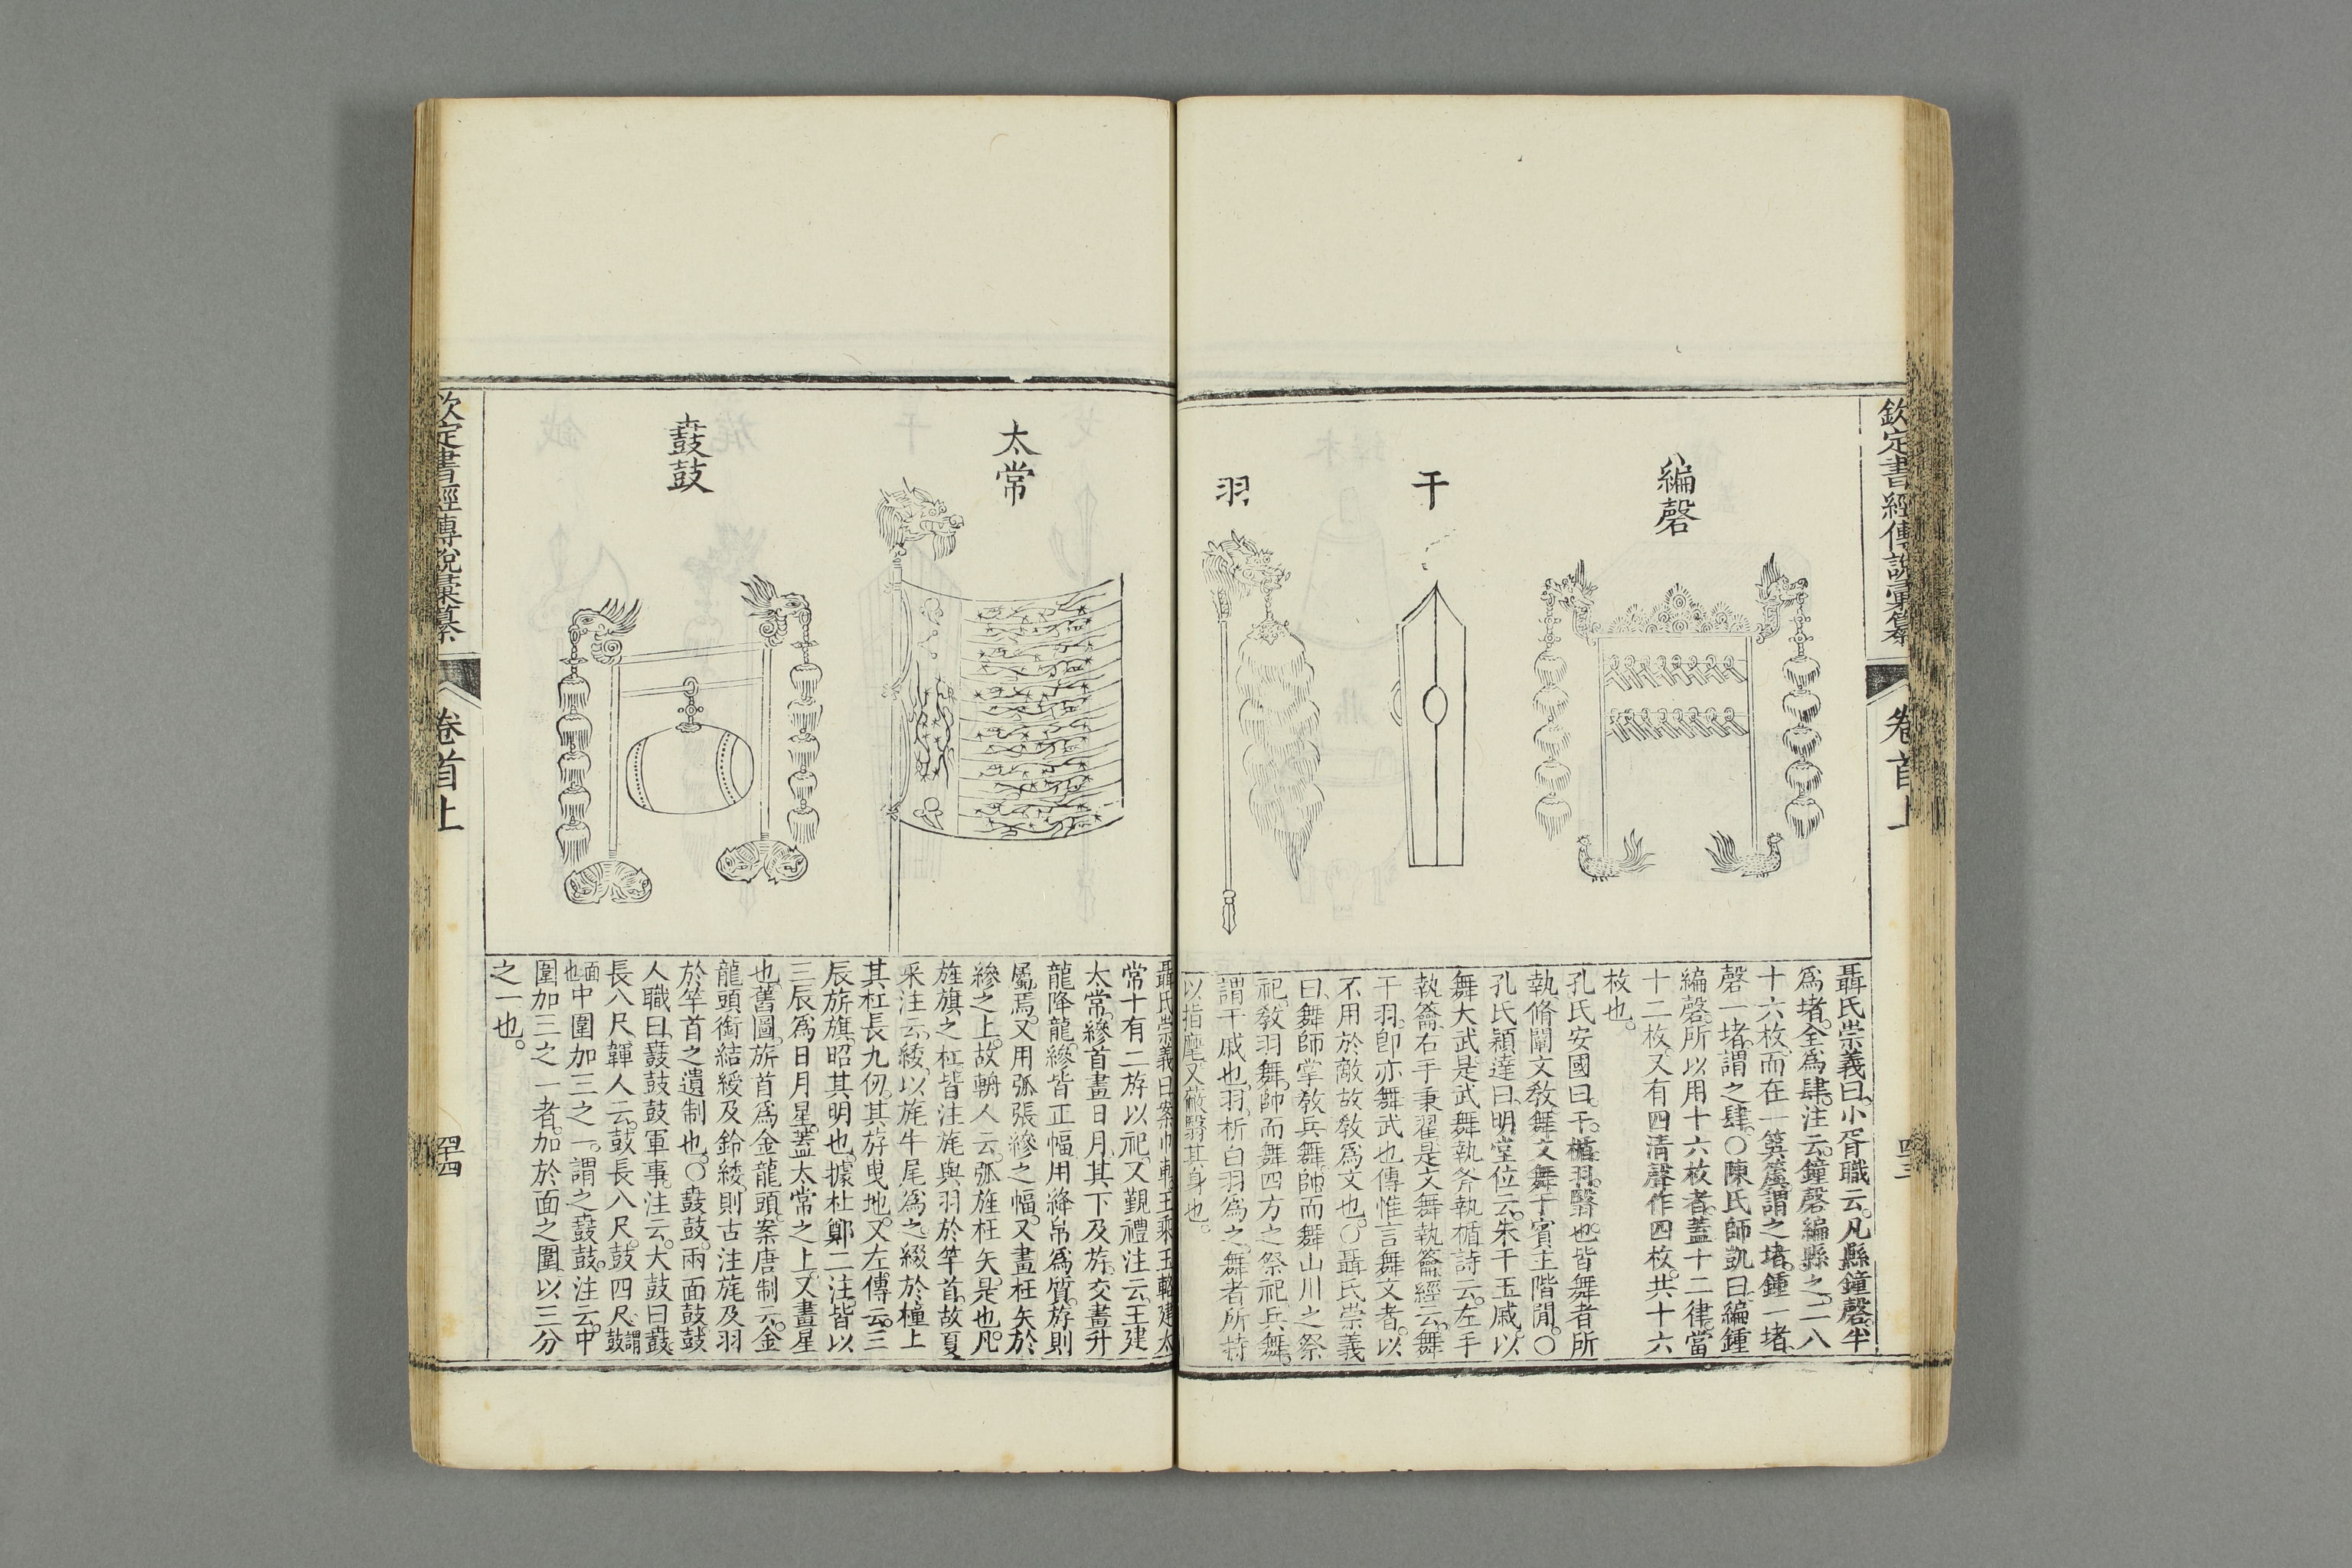 欽定書經傳說彙纂
卷首上
四三
編磬
干
羽
聶氏崇義曰小胥職云凡縣鐘磬半
爲堵全爲肆注云鐘磬編縣之二八
十六枚而在一簨簴謂之堵鍾一堵
磬一堵謂之肆○陳氏師凱曰編鍾
編磬所以用十六枚者蓋十二律當
十二枚又有四清聲作四枚共十六
枚也。
孔氏安國曰干楯羽翳也皆舞者所
執脩闡文敎舞文舞于賓主階閒○
孔氏穎達曰明堂位云朱干玉戚以
舞大武是武舞執斧執楯詩云左手
執籥右手秉翟是文舞執籥經云舞
干羽卽亦舞武也傳惟言舞文者以
不用於敵故敎爲文也○聶氏崇義
曰舞師掌敎兵舞帥而舞山川之祭
祀敎羽舞帥而舞四方之祭祀兵舞
謂干戚也羽析白羽爲之舞者所持
以指麾又蔽翳其身也。
太常
鼖鼓
聶氏崇義曰案巾車王乘玉輅建太
常十有二斿以祀又覲禮注云王建
太常縿首畫日月其下及斿交畫升
龍降龍縿皆正幅用絳帛爲質斿則
屬焉又用弧張縿之幅又畫枉矢於
縿之上故輈人云弧旌枉矢是也凡
旌旗之杠皆注旄與羽於竿首故夏
采注云綏以旄牛尾爲之綴於橦上
其杠長九仞其斿曳地又左傳云三
辰旂旗昭其明也據杜鄭二注皆以
三辰爲日月星蓋太常之上又畫星
也舊圖旂首爲金龍頭案唐制云金
龍頭銜結綬及鈴綏則古注旄及羽
於竿首之遺制也○鼖鼓兩面鼓鼓
人職曰鼖鼓鼓軍事注云大鼓曰鼖
長八尺韗人云鼓長八尺鼓四尺謂鼓
面也中圍加三之一謂之鼖鼓注云中
圍加三之一者加於面之圍以三分
之一也。
欽定書經傳說彙纂
卷首上
四四